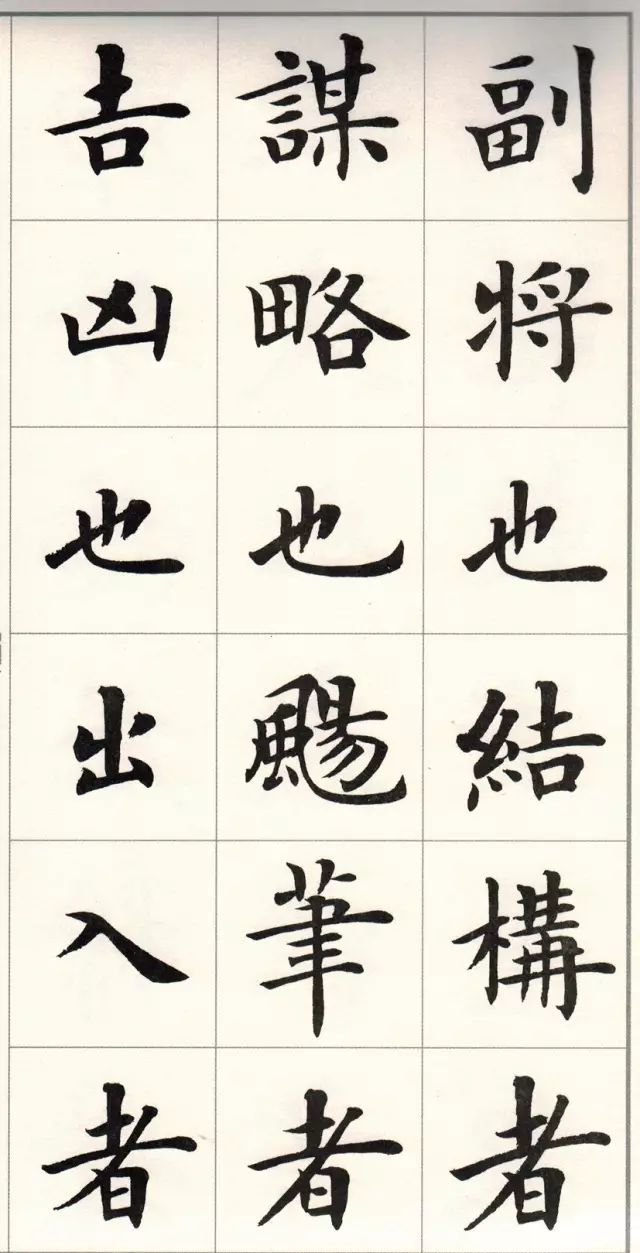 副将也結構者
謀略也颺筆者
吉凶也出入者